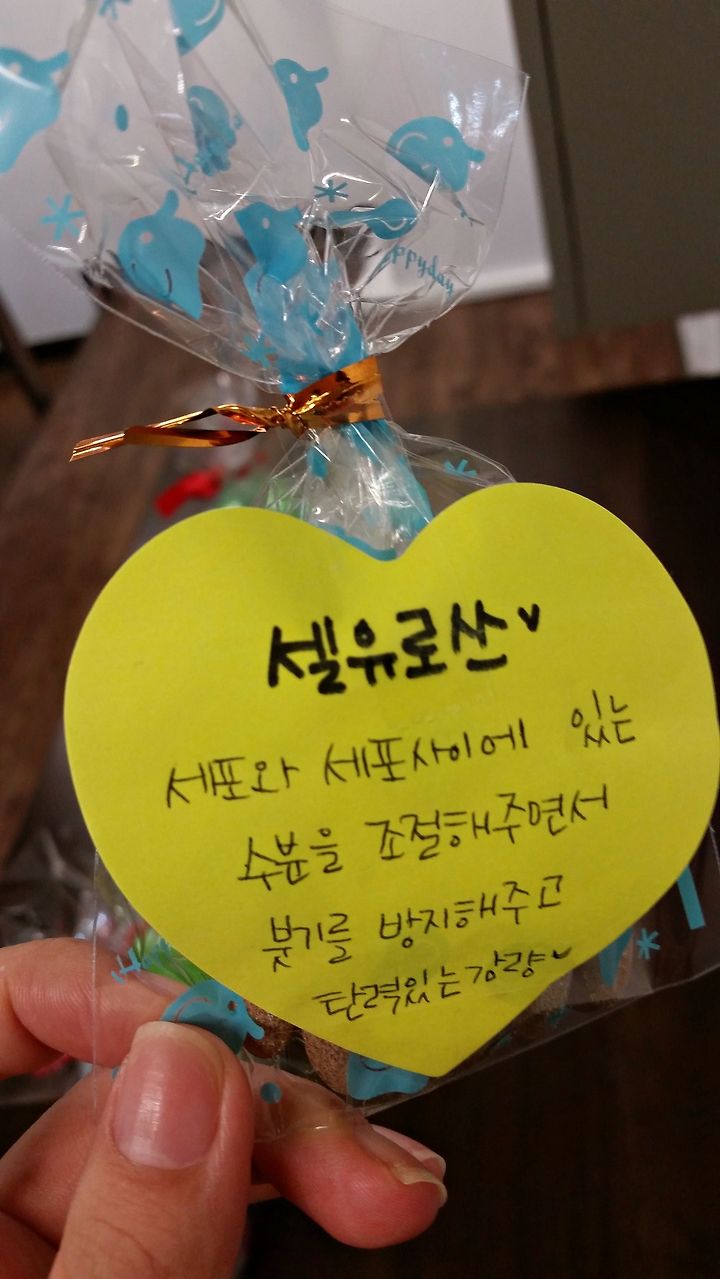 ppyday
셀유로산♥
세포와 세포사이에 있는
수분을 조절해주면서
붓기를 방지해주고
탄력있는강량♥